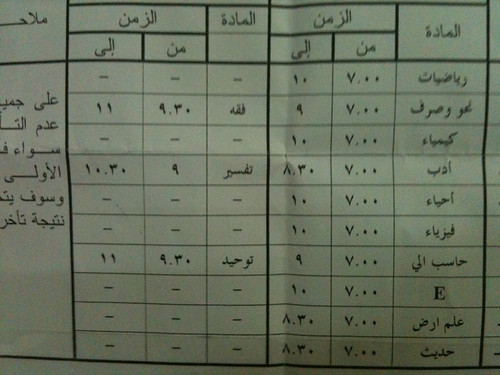 المادة الزمن المادة الزمن
من إلى من إلى
رياضيات ٧.٠٠ ١٠ – – –
نحو وصرف ٧.٠٠ ٩ فقه ٩.٣٠ ١١
كيمياء ٧.٠٠ ١٠ – – –
أدب ٧.٠٠ ٨.٣٠ تفسير ٩ ١٠.٣٠
أحياء ٧.٠٠ ١٠ – – –
فيزياء ٧.٠٠ ١٠ – – –
حاسب الي ٧.٠٠ ٩ توحيد ٩.٣٠ ١١
E ٧.٠٠ ١٠ – – –
علم ارض ٧.٠٠ ٨.٣٠ – – –
حديث ٧.٠٠ ٨.٣٠ – – –
ملاحـ
على جميـ
عدم التـأ
سـواء فـ
الأولـى
وسوف يتحـ
نتيجة تأخر